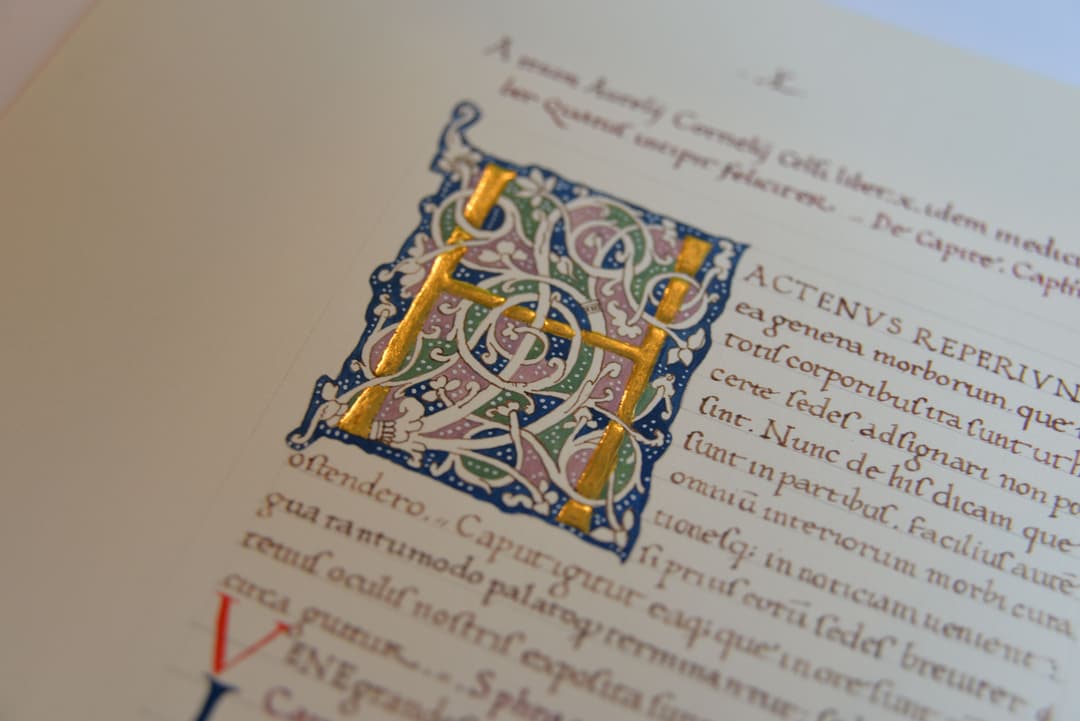 Aurelij Cornelij Celsi liber .x. idem medici
ber Quartus incipit feliciter. De Capite. Capit
HACTENVS REPERIVN
ea genera morborum. que
totiſ corporibuſ ita ſunt ut h
certe ſedeſ adſignari non po
ſint. Nunc de hiſ dicam que
ſunt in partibuſ. Faciliuſ aūt
omniū interiorum morbi cura
tioneſq; in noticiam uenient:
ſi priuſ eorū ſedeſ breuiter
oſtendero. Caput igitur eaq; que in ore ſunt
gua tantumodo palatoq; terminantur:
tenuſ oculiſ noſtriſ expoſita ſunt
circa guttur
VENE grandeſ